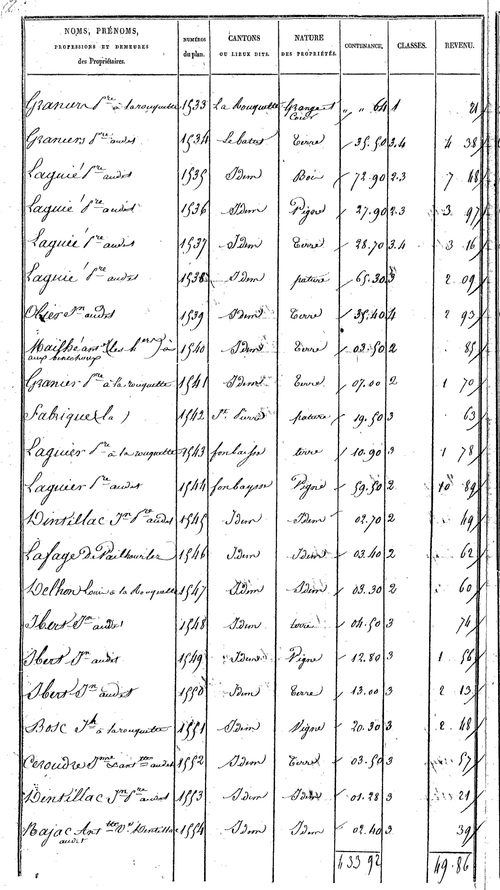 NOMS, PRÉNOMS, PROFESSIONS ET DEMEURES des Propriétaires. | NUMÉROS du plan. | CANTONS OU LIEUX DITS. | NATURE DES PROPRIÉTÉS. | CONTENANCE. | CLASSES. | REVENU.
Graniers Pre à larouquette 1533 La Rouquette Grange et Cour " " 64 1 21
Graniers Pre audit 1534 Lebatut Terre 35.50 3.4 4 38
Laguié Pre audit 1535 Idem Bois 72.90 2.3 7 48
Laguié Pre audit 1536 Idem Vigne 27.90 2.3 3 97
Laguié Pre audit 1537 Idem Terre 28.70 3.4 3 16
Laguié Pre audit 1538 Idem pature 65.30 3 2 09
Olier Jn audit 1539 Idem Terre 35.40 4 2 93
Mailhé ant (les hers) à 1540 Idem Terre 03.50 2 85
Granier Pre à la rouquette 1541 Idem Terre 07.00 2 1 70
Fabrique (la) 1542 St. Pierre pature 19.50 3 63
Laguier Pre à la rouquette 1543 fonbaysse terre 10.90 3 1 78
Laguier Pre audit 1544 fonbaysse Vigne 59.50 2 10 89
Dintillac Jn Pre audit 1545 Idem Idem 02.70 2 49
Lafage De Pailhourlez 1546 Idem Idem 03.40 2 62
Delhon Louis à la Rouquette 1547 Idem Idem 03.30 2 60
Ibert Jn audit 1548 Idem terre 04.50 3 74
Ibert Jn audit 1549 Idem Vigne 12.80 3 1 56
Ibert Jn audit 1550 Idem Terre 13.00 3 2 13
Bosc Jh à larouquette 1551 Idem Vigne 20.30 3 2 48
1552 Idem Terre 03.50 3 57
Dintillac Jn Pre audit 1553 Idem Idem 01.28 3 21
Rajac Ant Dintillac 1554 Idem Idem 02.40 3 39
audit
433 92 49.86